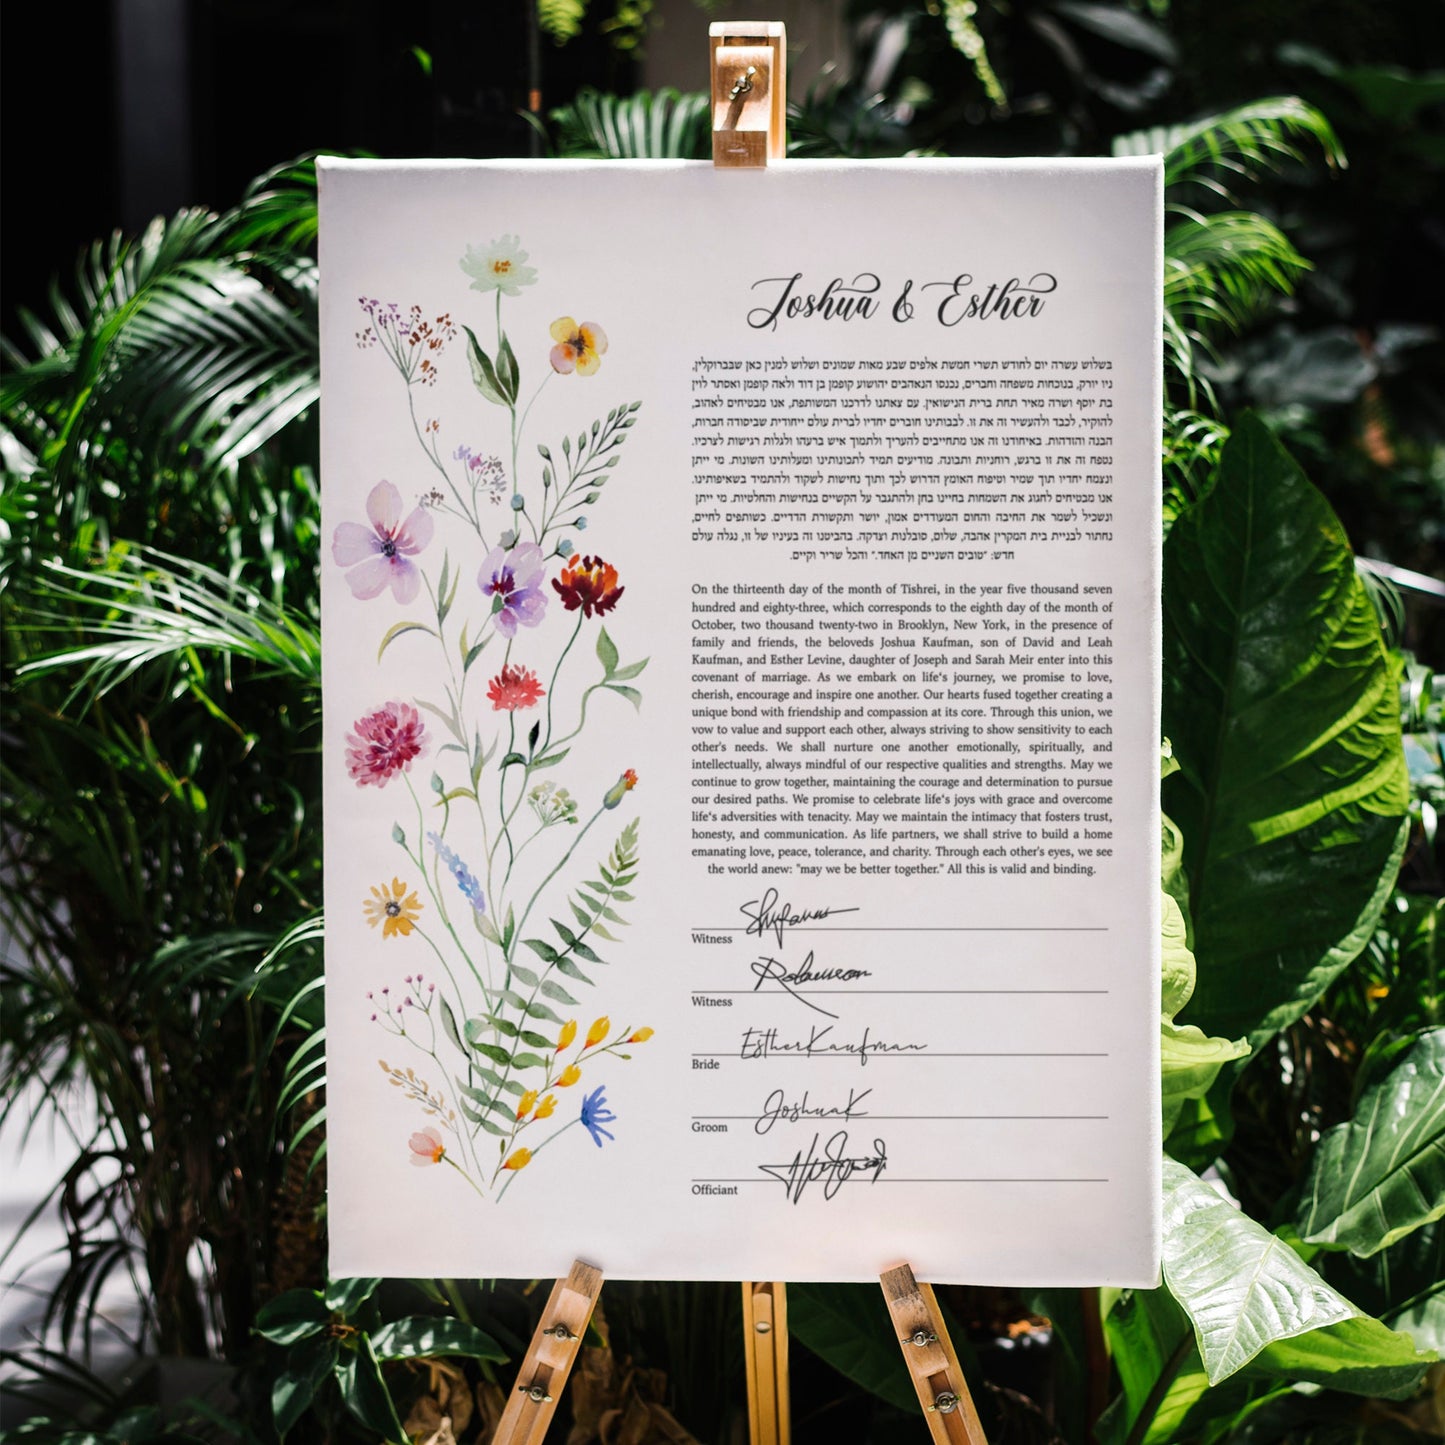 Joshua & Esther
בשלוש עשרה יום לחודש תשרי חמשת אלפים שבע מאות שמונים ושלוש למנין כאן שבברוקלין,
ניו יורק, בנוכחות משפחה וחברים, נכנסו הנאהבים יהושוע קופמן בן דוד ולאה קופמן ואסתר לוין
בת יוסף ושרה מאיר תחת ברית הנישואין. עם צאתנו לדרכנו המשותפת, אנו מבטיחים לאהוב,
להוקיר, לכבד ולהעשיר זה את זו. לבבותינו חוברים יחדיו לברית עולם ייחודית שביסודה חברות,
הבנה והזדהות. באיחודנו זה אנו מתחייבים להעריך ולתמוך איש ברעהו ולגלות רגישות לצרכיו.
נטפח זה את זו ברגש, רוחניות ותבונה. מודיעים תמיד לתכונותינו ומעלותינו השונות. מי ייתן
ונצמח יחדיו תוך שמיר וטיפוח האומץ הדרוש לכך ותוך נחישות לשקוד ולהתמיד בשאיפותינו.
אנו מבטיחים לחגוג את השמחות בחיינו בחן ולהתגבר על הקשיים בנחישות והחלטיות. מי ייתן
ונשכיל לשמר את החיבה והחום המעודדים אמון, יושר ותקשורת הדדיים. כשותפים לחיים,
נחתור לבניית בית המקרין אהבה, שלום, סובלנות וצדקה. בהביטנו זה בעיניו של זו, נגלה עולם
חדש: "טובים השניים מן האחד." והכל שריר וקיים.
On the thirteenth day of the month of Tishrei, in the year five thousand seven
hundred and eighty-three, which corresponds to the eighth day of the month of
October, two thousand twenty-two in Brooklyn, New York, in the presence of
family and friends, the beloveds Joshua Kaufman, son of David and Leah
Kaufman, and Esther Levine, daughter of Joseph and Sarah Meir enter into this
covenant of marriage. As we embark on life's journey, we promise to love,
cherish, encourage and inspire one another. Our hearts fused together creating a
unique bond with friendship and compassion at its core. Through this union, we
vow to value and support each other, always striving to show sensitivity to each
other's needs. We shall nurture one another emotionally, spiritually, and
intellectually, always mindful of our respective qualities and strengths. May we
continue to grow together, maintaining the courage and determination to pursue
our desired paths. We promise to celebrate life's joys with grace and overcome
life's adversities with tenacity. May we maintain the intimacy that fosters trust,
honesty, and communication. As life partners, we shall strive to build a home
emanating love, peace, tolerance, and charity. Through each other's eyes, we see
the world anew: "may we be better together." All this is valid and binding.
Witness
Witness
Bride Esther Kaufman
Groom Joshua K
Officiant